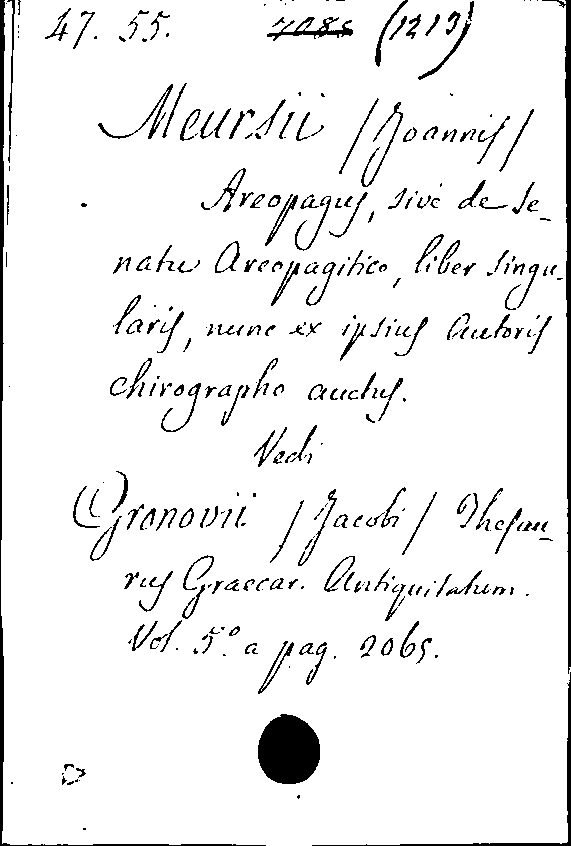 47. 55. 7085 (1213)
Meursii /Joannis/
Areopagus, sive de Se-
natu Areopagitico, liber singu-
laris, nunc ex ipsius Autoris
chirographo auctus.
Vedi
Gronovii /Jacobi/ Thesau-
rus Graecar. Antiquitatum.
Vol. 5.º a pag. 2065.